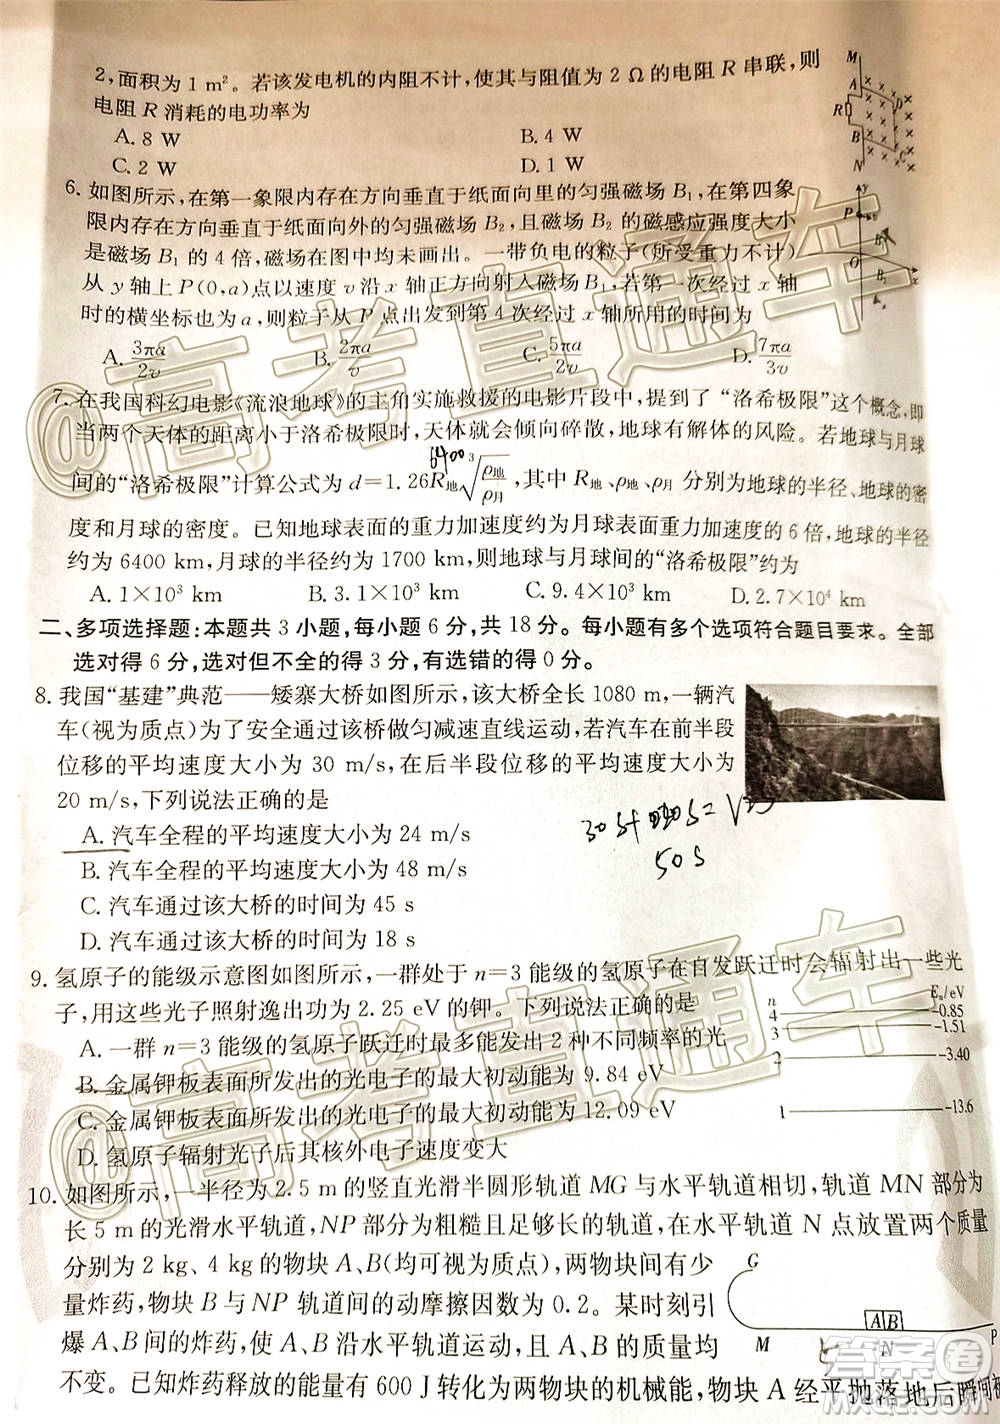 2,面积为1 m²。若该发电机的内阻不计,使其与阻值为2 Ω的电阻R串联,则
电阻R消耗的电功率为
A. 8 W B. 4 W
C. 2 W D. 1 W
M
A
D
R
B
C
N
6. 如图所示,在第一象限内存在方向垂直于纸面向里的匀强磁场B₁,在第四象
限内存在方向垂直于纸面向外的匀强磁场B₂,且磁场B₂的磁感应强度大小
是磁场B₁的4倍,磁场在图中均未画出。一带负电的粒子(所受重力不计)
从y轴上P(0,a)点以速度v沿x轴正方向射入磁场B₁,若第一次经过x轴
时的横坐标也为a,则粒子从P点出发到第4次经过x轴所用的时间为
A. 3πa/2v B. 2πa/v C. 5πa/2v D. 7πa/3v
y
P
O
x
7. 在我国科幻电影《流浪地球》的主角实施救援的电影片段中,提到了“洛希极限”这个概念,即
当两个天体的距离小于洛希极限时,天体就会倾向碎散,地球有解体的风险。若地球与月球
6400
间的“洛希极限”计算公式为d=1.26R地∛(ρ地/ρ月),其中R地、ρ地、ρ月分别为地球的半径、地球的密
度和月球的密度。已知地球表面的重力加速度约为月球表面重力加速度的6倍,地球的半径约为
6400 km,月球的半径约为1700 km,则地球与月球间的“洛希极限”约为
A. 1×10³ km B. 3.1×10³ km C. 9.4×10³ km D. 2.7×10⁴ km
二、多项选择题:本题共3小题,每小题6分,共18分。每小题有多个选项符合题目要求。全部
选对得6分,选对但不全的得3分,有选错的得0分。
8. 我国“基建”典范——矮寨大桥如图所示,该大桥全长1080 m,一辆汽
车(视为质点)为了安全通过该桥做匀减速直线运动,若汽车在前半段
位移的平均速度大小为30 m/s,在后半段位移的平均速度大小为
20 m/s,下列说法正确的是
A. 汽车全程的平均速度大小为24 m/s
B. 汽车全程的平均速度大小为48 m/s
C. 汽车通过该大桥的时间为45 s
D. 汽车通过该大桥的时间为18 s
50 s
9. 氢原子的能级示意图如图所示,一群处于n=3能级的氢原子在自发跃迁时会辐射出一些光
子,用这些光子照射逸出功为2.25 eV的钾。下列说法正确的是
A. 一群n=3能级的氢原子跃迁时最多能发出2种不同频率的光
B. 金属钾板表面所发出的光电子的最大初动能为9.84 eV
C. 金属钾板表面所发出的光电子的最大初动能为12.09 eV
D. 氢原子辐射光子后其核外电子速度变大
n Eₙ/eV
4 -0.85
3 -1.51
2 -3.40
1 -13.6
10. 如图所示,一半径为2.5 m的竖直光滑半圆形轨道MG与水平轨道相切,轨道MN部分为
长5 m的光滑水平轨道,NP部分为粗糙且足够长的轨道,在水平轨道N点放置两个质量
分别为2 kg、4 kg的物块A、B(均可视为质点),两物块间有少
量炸药,物块B与NP轨道间的动摩擦因数为0.2。某时刻引
爆A、B间的炸药,使A、B沿水平轨道运动,且A、B的质量均
不变。已知炸药释放的能量有600 J转化为两物块的机械能,物块A经平抛落地后瞬间
G
A B
M N P
@高考直通车
@高考直通车
答案圈